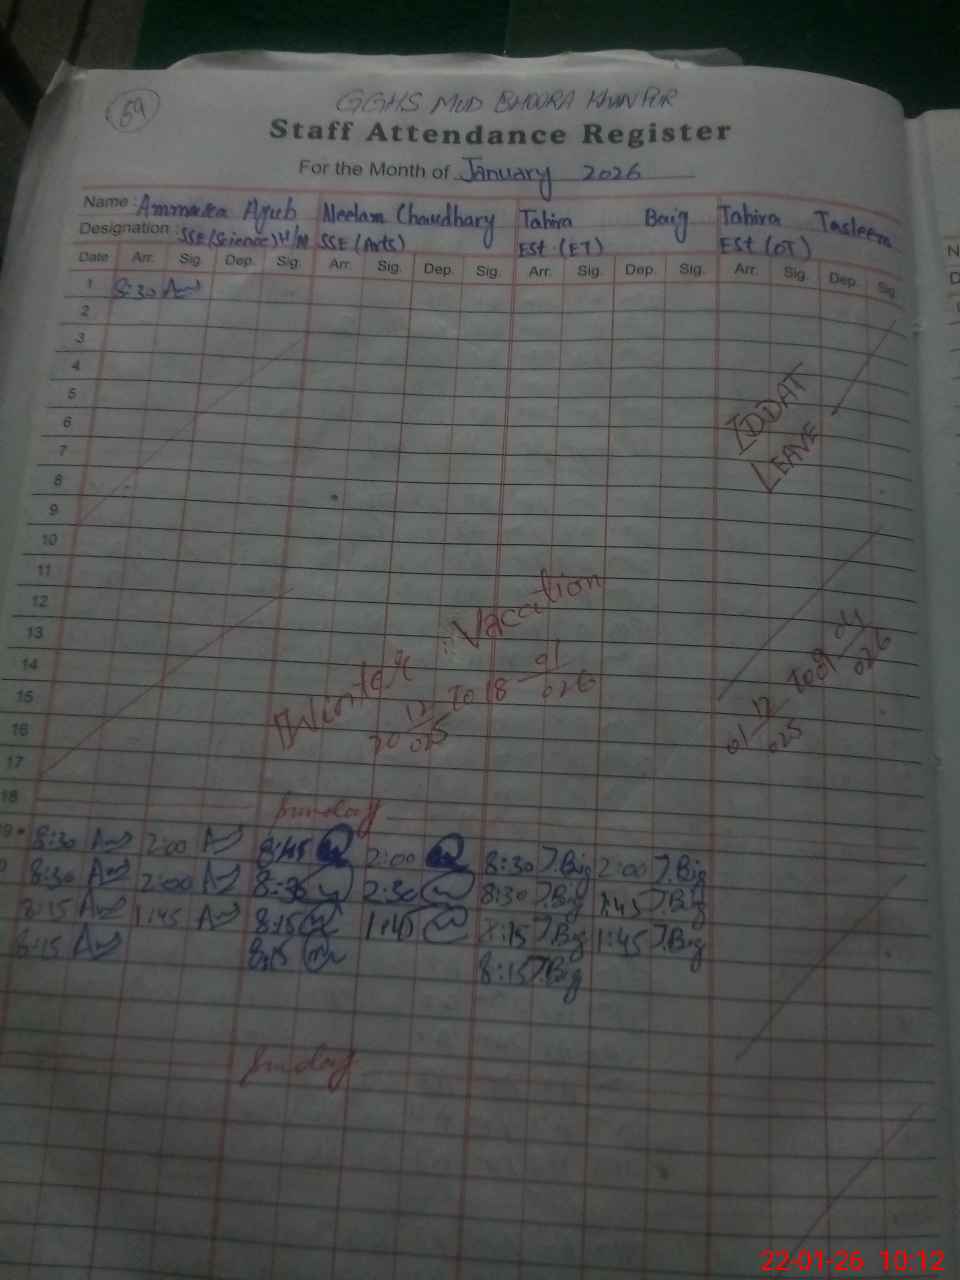 59
GGHS MUD BHOORA KHANPUR
Staff Attendance Register
For the Month of January 2026
Name : Ammara Ayub Neelam Chaudhary Tahira Baig Tahira Tasleem
Designation : SSE(Science)H/M SSE (Arts) EST (ET) EST (OT)
Date Arr. Sig. Dep. Sig. Arr. Sig. Dep. Sig. Arr. Sig. Dep. Sig. Arr. Sig. Dep. Sig.
1 8:30
2
3
4
5
6
7
8
9
10
11
12
13
14
15
16
17
18
IDDAT
LEAVE
Winter Vaccation
20 12/025 To 18 01/026
01 12/025 To 09 04/026
Sunday
9 8:30 2:00 8:45 2:00 8:30 T.Big 2:00 T.Big
8:30 2:00 8:30 2:30 8:30 T.Big 1:45 T.Big
8:15 1:45 8:15 1:45 8:15 T.Big 1:45 T.Big
8:15 8:15 8:15 T.Big
Sunday
22-01-26 10:12